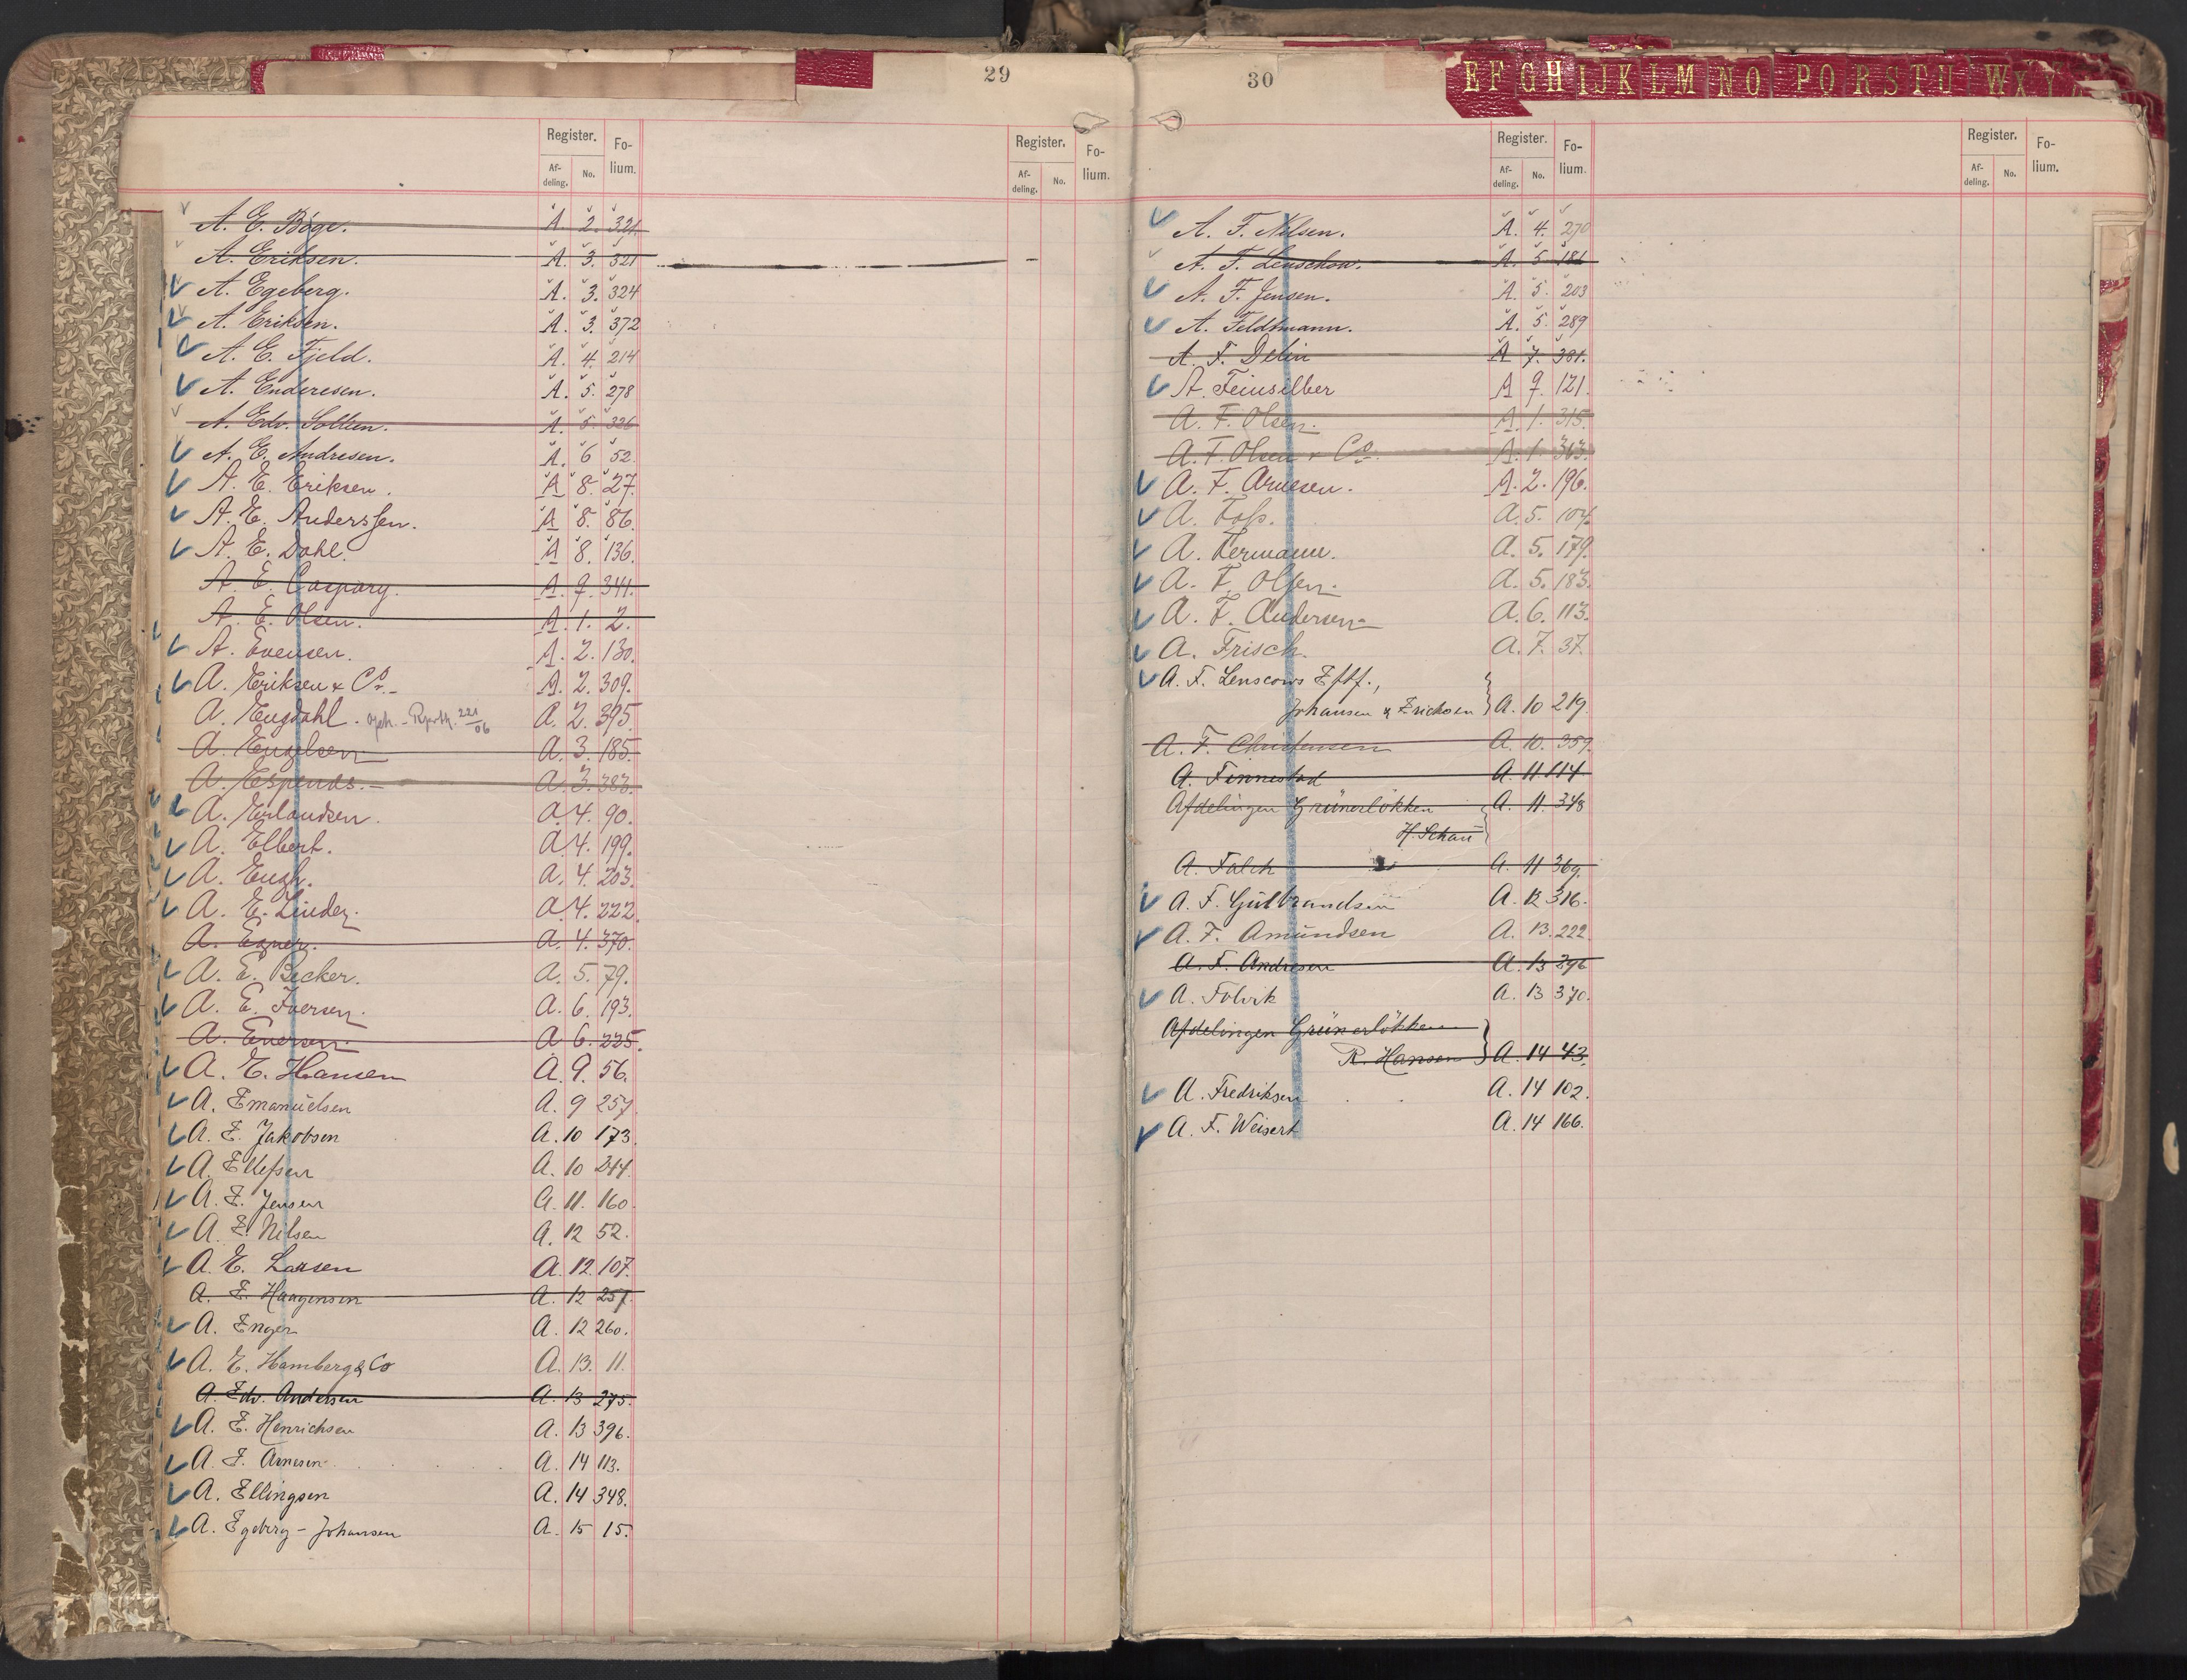 29
Register. Fo-
lium.
Af-
deling. No.
Register. Fo-
lium.
Af-
deling. No.
A. E. Böge. A. 2. 321.
A. Eriksen. A. 3. 321
A. Egeberg. A. 3. 324
A. Eriksen. A. 3. 372
A. E. Fjeld. A. 4. 214
A. Enderesen. A. 5. 278
A. Edv. Soltien. A. 5. 326
A. E. Andresen. A. 6 52.
A. E. Eriksen. A 8. 27.
A. E. Anderssen. A 8. 86.
A. E. Dahl. A 8. 136.
A. E. Caspary. A. 9. 341.
A. E. Olsen. A. 1. 2.
A. Evensen. A. 2. 130.
A. Eriksen & Co. A. 2. 309.
A. Engdahl. A. 2. 395.
A. Engelsen A. 3. 185.
A. Espenæs. A. 3. 383.
A. Erlandsen. A. 4. 90.
A. Elbert. A. 4. 199.
A. Engh. A. 4. 203.
A. E. Linder. A. 4. 222.
A. Exner. A. 4. 370.
A. E. Becker. A. 5. 79.
A. E. Iversen. A. 6. 193.
A. Enersen. A 6. 225.
A. E. Hansen A. 9. 56.
A. Emanuelsen A. 9 257.
A. E. Jakobsen A. 10 173.
A. Ellefsen A. 10 244.
A. E. Jensen A. 11. 160.
A. E. Nilsen A. 12 52.
A. E. Larsen A. 12. 107.
A. E. Haagensen A. 12 257.
A. Enger A. 12 260.
A. E. Hamberg & Co A. 13. 11.
A. Edv. Andersen A. 13 275.
A. E. Henrichsen A. 13 396.
A. E. Arnesen A. 14 113.
A. Ellingsen A. 14 348.
A. Egeberg - Johansen A. 15 15.
30
E F G H I J K L M N O P Q R S T U W X Y
Register. Fo-
lium.
Af-
deling. No.
Register. Fo-
lium.
Af-
deling. No.
A. F. Nilsen. A. 4. 270
A. F. Lenschow. A. 5. 181
A. F. Jensen. A. 5. 203
A. Feldtmann. A. 5. 289
A. F. Delin A 7. 381.
A. Feinselber A 9. 121.
A. F. Olsen. A. 1. 315.
A. F. Olsen & Co. A. 1. 363.
A. F. Arnesen. A. 2. 196.
A. Foss. A. 5. 104.
A. Fermann. A. 5. 179.
A. F. Olsen. A. 5. 183.
A. F. Andersen A. 6. 113.
A. Frisch. A. 7. 37.
A. F. Lenscows Eftf.,
Johansen & Erichsen A. 10 219.
A. F. Christensen A. 10. 359.
A. Finnestad A. 11 114.
Afdelingen Grünerlökken A. 11. 348
H. Schau
A. Falch A. 11 369.
A. F. Gulbrandsen A. 12 316.
A. F. Amundsen A. 13. 222.
A. F. Andresen A. 13 296
A. Folvik A. 13 370.
Afdelingen Grünerlökken
R. Hansen A. 14 43.
A. Fredriksen A. 14 102.
A. F. Weisert A. 14 166.